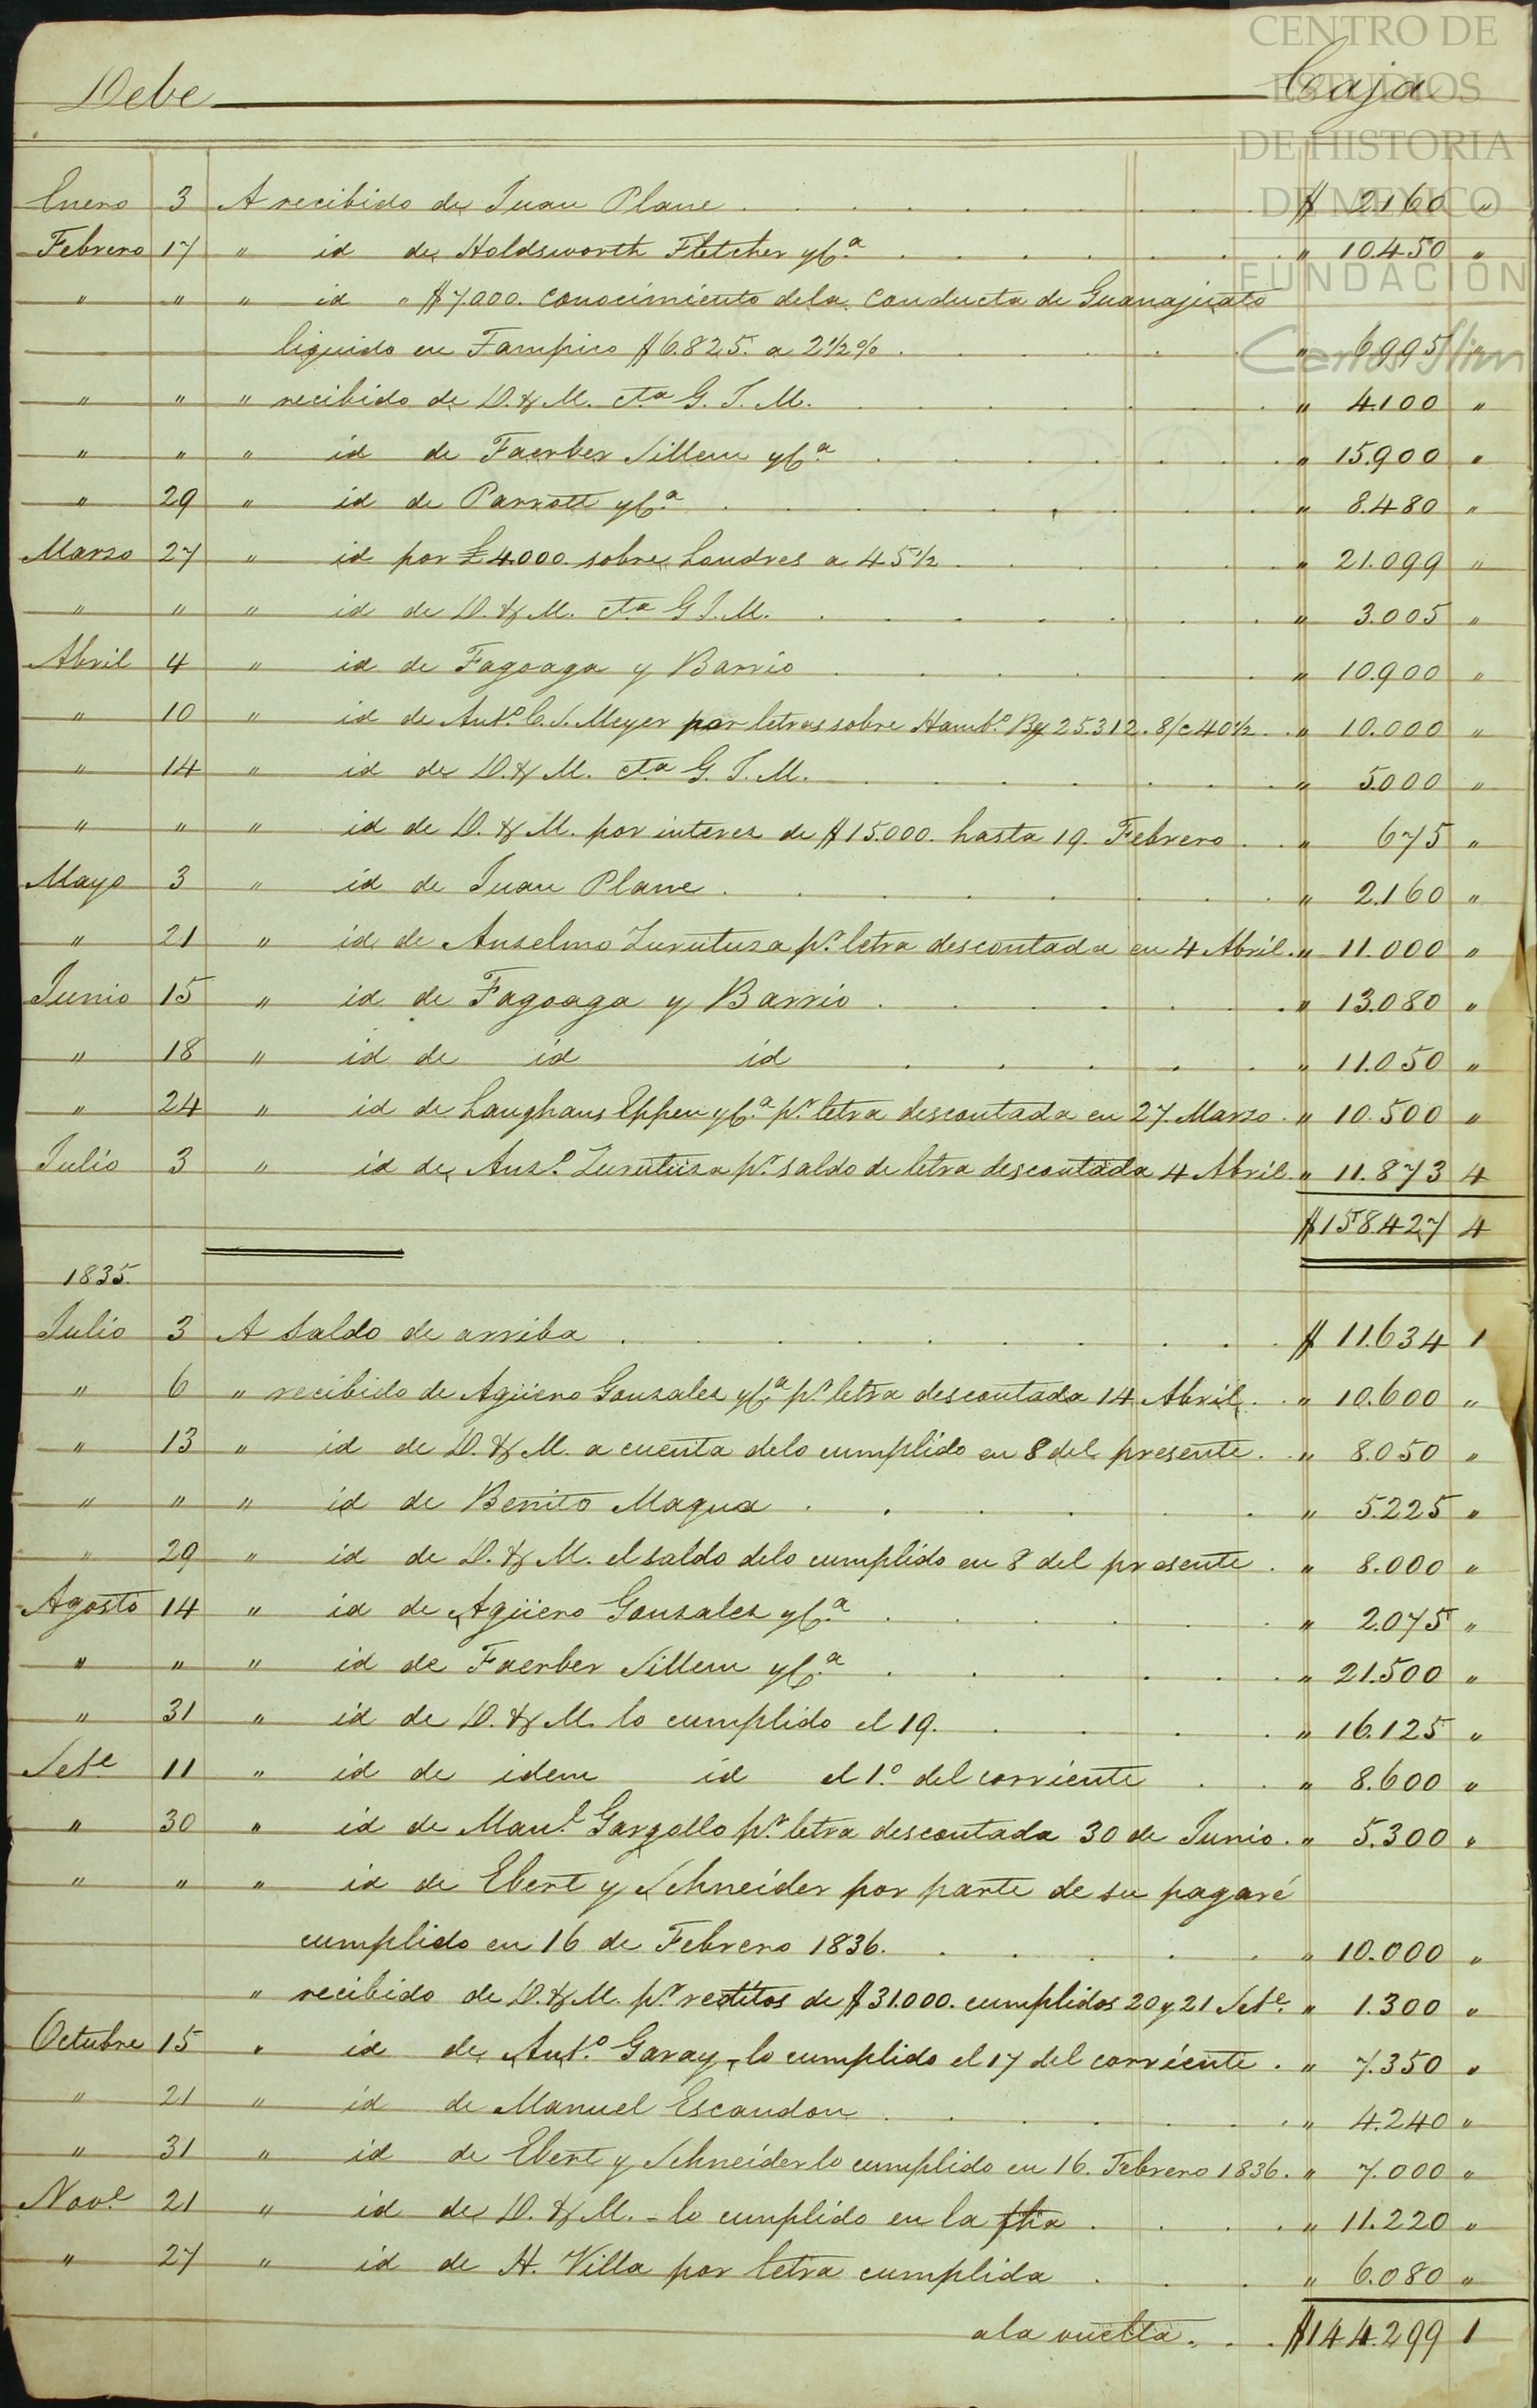 CENTRO DE
ESTUDIOS
DE HISTORIA
DE MEXICO
FUNDACIÓN
Carlos Slim
Debe Caja
Enero 3 A recibido de Juan Plane $ 2.160 "
Febrero 17 " id de Holdsworth Fletcher yCª " 10.450 "
" " " id " $7.000. conocimiento dela conducta de Guanajuato
liquido en Tampico $6.825. a 2½% " 6.995 "
" " " recibido de D. & M. cta G. J. M. " 4.100 "
" " " id de Faerber Sillem yCª " 15.900 "
" 29 " id de Parrott yCª " 8.480 "
Marzo 27 " id por £4.000. sobre Londres a 45½ " 21.099 "
" " " id de D. & M. cta G J. M. " 3.005 "
Abril 4 " id de Fagoaga y Barrio " 10.900 "
" 10 " id de Antº C. S. Meyer por letras sobre Hambº 25.312. 8/c 40½ " 10.000 "
" 14 " id de D. & M. cta G. J. M. " 5.000 "
" " " id de D. & M. por interes de $15.000. hasta 19. Febrero " 675 "
Mayo 3 " id de Juan Plane " 2.160 "
" 21 " id de Anselmo Zurutuza pr letra descontada en 4 Abril " 11.000 "
Junio 15 " id de Fagoaga y Barrio " 13.080 "
" 18 " id de id id " 11.050 "
" 24 " id de Langhans Eppen yCª pr letra descontada en 27. Marzo " 10.500 "
Julio 3 " id de Ansº Zurutuza pr saldo de letra descontada 4 Abril " 11.873 4
$158.427 4
1835.
Julio 3 A Saldo de arriba $ 11.634 1
" 6 " recibido de Agüero Gonsales yCª pr letra descontada 14 Abril " 10.600 "
" 13 " id de D. & M. a cuenta delo cumplido en 8 del presente " 8.050 "
" " " id de Benito Maqua " 5.225 "
" 29 " id de D. & M. el saldo delo cumplido en 8 del presente " 8.000 "
Agosto 14 " id de Agüero Gonsales yCª " 2.075 "
" " " id de Faerber Sillem yCª " 21.500 "
" 31 " id de D. & M. lo cumplido el 19. " 16.125 "
Sete 11 " id de idem id el 1.º del corriente " 8.600 "
" 30 " id de Manl Gargollo pr letra descontada 30 de Junio " 5.300 "
" " " id de Ebert y Schneider por parte de su pagaré
cumplido en 16 de Febrero 1836. " 10.000 "
" recibido de D. & M. pr reditos de $31.000. cumplidos 20 y 21 Sete " 1.300 "
Octubre 15 " id de Antº Garay, lo cumplido el 17 del corriente " 7.350 "
" 21 " id de Manuel Escandon " 4.240 "
" 31 " id de Ebert y Schneider lo cumplido en 16. Febrero 1836. " 7.000 "
Nove 21 " id de D. & M. - lo cumplido en la fha " 11.220 "
" 27 " id de H. Villa por letra cumplida " 6.080 "
ala vuelta $144.299 1